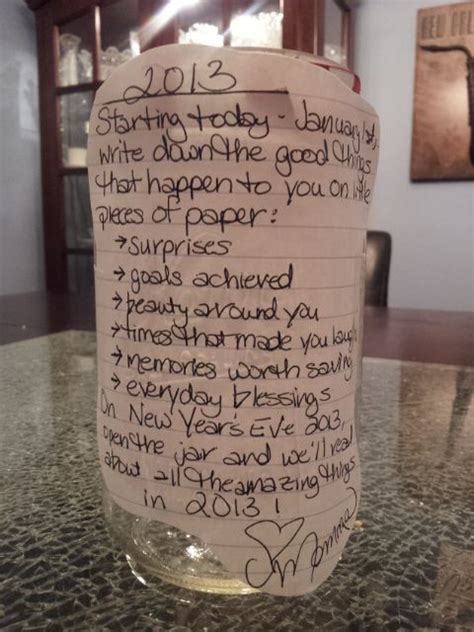 2013
Starting today - January 1st,
write down the good things
that happen to you on little
pieces of paper:
→ surprises
→ goals achieved
→ beauty around you
→ times that made you laugh
→ memories worth saving
→ everyday blessings
On New Year's Eve 2013,
open the jar and we'll read
about all the amazing things
in 2013!
♡ Momma